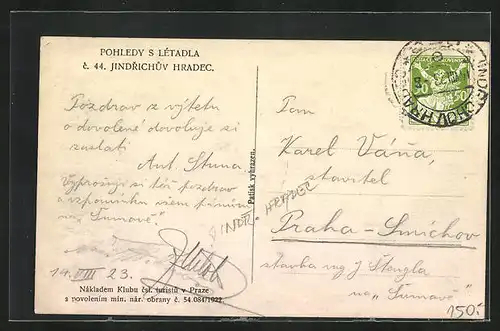 POHLEDY S LÉTADLA
č. 44. JINDŘICHŮV HRADEC.
Pozdrav z výletu
o dovolené dovoluje si
zaslati
Ant. Stuna
Vyprošuji si též pozdrav
a vzpomínku všem pánům
na "Šumavě".
14. VIII 23.
Nákladem Klubu čsl. turistů v Praze
s povolením min. nár. obrany č. 54.084/1922.
Patisk vyhrazen.
JINDŘ. HRADEC
Pan
Karel Váňa,
stavitel
Praha-Smíchov
stavba ing J Štengla
na "Šumavě"
150.-